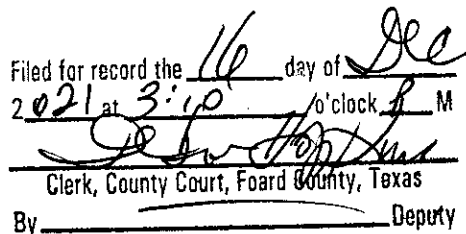 Filed for record the 16 day of Dec
2021 at 3:10 o'clock P M
Clerk, County Court, Foard County, Texas
By Deputy